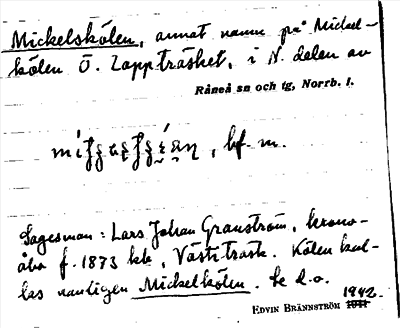 Mickelskölen, annat namn på Mickel-
kölen Ö. Lappträsket, i N. delen av
Råneå sn och tg, Norrb. l.
, bf. m.
Sagesman: Lars Johan Granström, krono-
åbo f. 1873 här, Västiträsk. Kölen kal-
las vanligen Mickelkölen. Se d.o.
1942.
EDVIN BRÄNNSTRÖM 1941